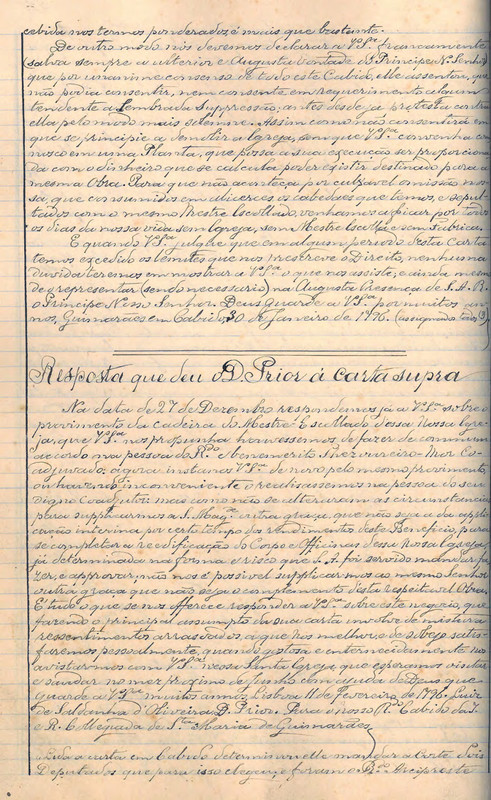 cabida nos termos ponderados é mais que bastante.
De outro modo nós devemos declarar a VSª francamente
(salva sempre a ulterior e Augusta vontade do Principe N. Senhor)
que por unanime consenso de todo este Cabido, elle assentou, que
não podia consentir, nem consente em requerimento algum
tendente a lembrada Suppressão, antes desde já protesta contra
ella pelo modo mais solemne. Assim como não consentirá em
que se principie a demolir a Igreja, sem que VSª convenha com
nosco em uma Planta, que possa a sua execução ser proporciona
da com o dinheiro que se calcula poder existir destinado para a
mesma Obra. Para que não aconteça por culpavel omissão nos
sa, que consumidos em alicerces os cabedaes que temos, e sepul
tados com o mesmo Mestre Escollado, venhamos a ficar por todos
os dias da nossa vida sem Igreja, sem Mestre Escolla e sem Fabrica.
E quando VSª julgue que em algum periodo desta Carta
temos excedido os lemites que nos prescreve o Direito, nenhuma
duvida teremos em mostrar a VSª o que nos assiste; e ainda mesmo
de representar (sendo necessario) na Augusta Presença de S. A. R.
o Principe Nosso Senhor. Deus Guarde a VSª por muitos an
nos, Guimarães em Cabido, 30 de Janeiro de 1796. (assignado todos)
Resposta que deu o D. Prior á carta supra
Na data de 27 de Dezembro respondemos já a VSª sobre o
provimento da cadeira do Mestre Escollado dessa Nossa Igre
ja, que VSª nos propunha houvessemos de fazer de commum
acordo na pessoa do Rdo e benemerito Thezoureiro-Mor Co-
adjuvado; agora instanos VSª de novo pelo mesmo provimento,
ou havendo inconveniente o realisassemos na pessoa do seu
digno Coadjutor: mas como não se alteraram as circunstancias
para supplicarmos a S. Mag. outra graça, que não seja a da appli
cação interina por certo tempo dos rendimentos deste Beneficio, para
se completar a reedificação do Corpo e Officinas dessa Nossa Igreja,
já determinada na forma e risco que S. A. foi servido mandar fa
zer, e approvar; não nos é possivel supplicarmos ao mesmo Senhor
outra graça que não seja o complemento desta respeitavel Obra.
É tudo o que se nos offerece responder a VSª sobre este negocio, que
fazendo o principal assumpto da sua carta involve de mistura
ressentimentos arrasoados, a que nos melhor e de sobejo satis-
faremos pessoalmente, quando gostosa e enternecidamente nos
avistarmos com VSª nessa Santa Igreja que esperamos visitar
e saudar no mez proximo de Junho com ajuda de Deus que
guarde a VSª muitos annos. Lisboa 11 de Fevereiro de 1796. Luiz
de Saldanha d'Oliveira D. Prior. Para o nosso Rdo Cabido da I.
e R. Collegiada de Sta Maria de Guimarães.
Lida a carta em Cabido determinou elle mandar a Corte dois
Deputados que para isso elegeu, e foram o Rdo Arcipreste